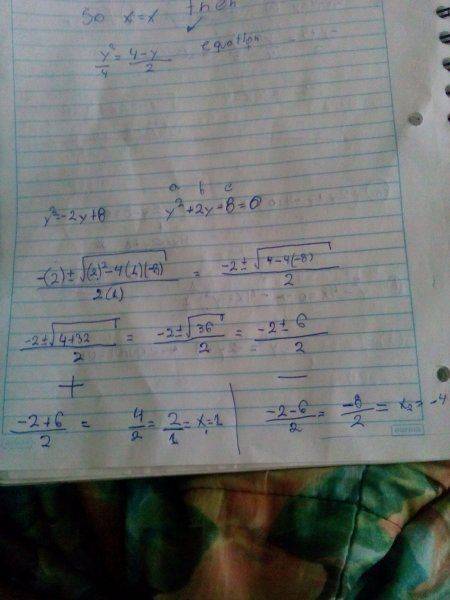 So x=x then
y²/4 = 4-y/2 equation
a b c
y²=-2y+8 y²+2y-8=0
-(2)±√(2)²-4(1)(-8)/2(1) = -2±√4-4(-8)/2
-2±√4+32/2 = -2±√36/2 = -2± 6/2
+ −
-2+6/2 = 4/2 = 2/1 = x₁=1 -2-6/2 = -8/2 = x₂=-4